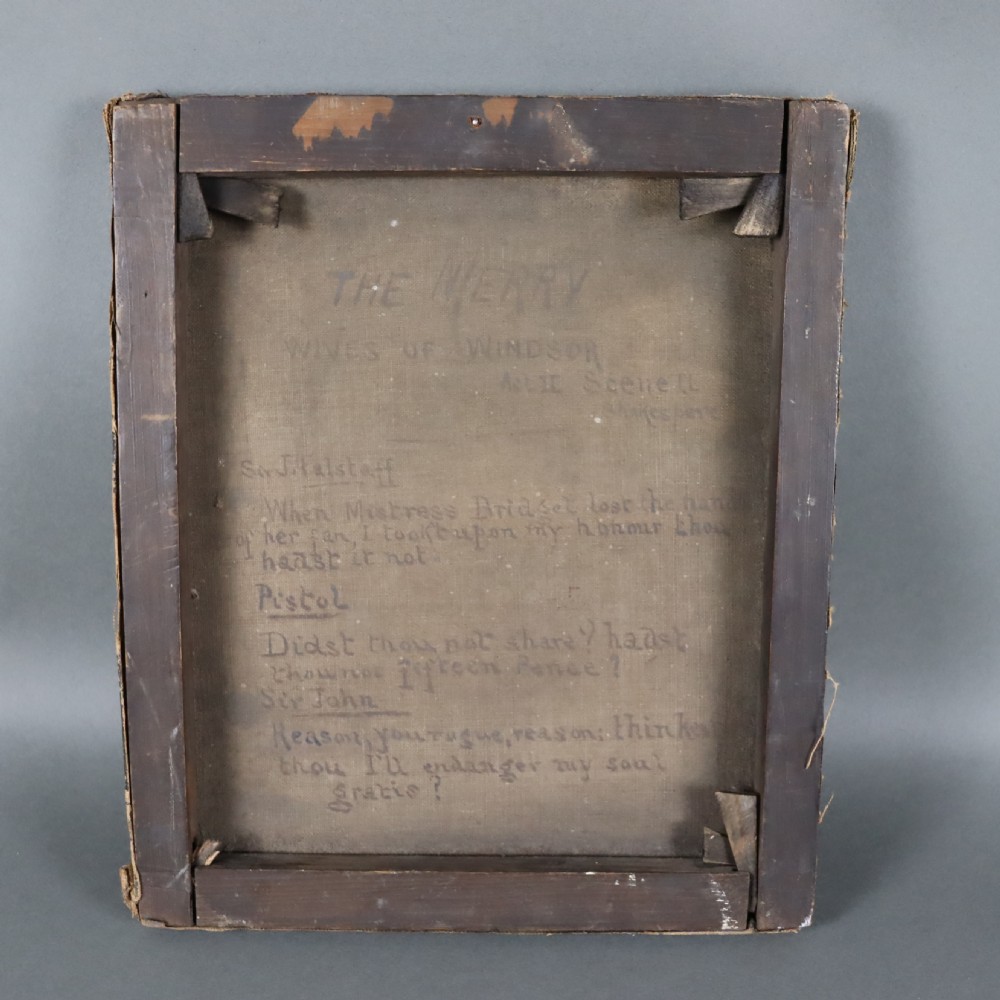 THE MERRY
WIVES OF WINDSOR
Act II Scene II
Shakespere
Sir J. Falstaff
When Mistress Bridget lost the hand
of her fan, I took't upon my honour thou
hadst it not.
Pistol
Didst thou not share? hadst
thou not fifteen Pence?
Sir John
Reason, you rogue, reason: thinkst
thou I'll endanger my soul
gratis?